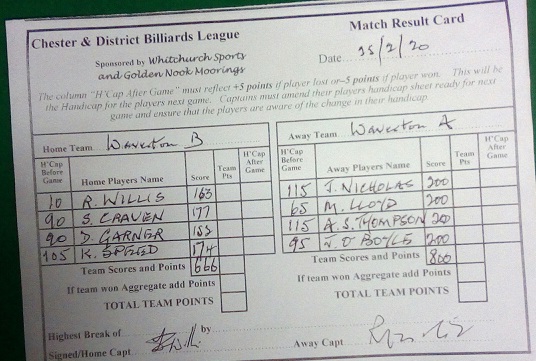 Chester & District Billiards League
Match Result Card
Sponsored by Whitchurch Sports
and Golden Nook Moorings
Date 25/2/20
The column "H'Cap After Game" must reflect +5 points if player lost or -5 points if player won. This will be
the Handicap for the players next game. Captains must amend their players handicap sheet ready for next
game and ensure that the players are aware of the change in their handicap.
Home Team Waverton B
H'Cap Before Game Home Players Name Score Team Pts H'Cap After Game
10 R. WILLIS 163
90 S. CRAVEN 177
90 D. GARNER 152
105 K. SPEED 174
Team Scores and Points 666
If team won Aggregate add Points
TOTAL TEAM POINTS
Away Team Waverton A
H'Cap Before Game Away Players Name Score Team Pts H'Cap After Game
115 J. NICHOLAS 200
65 M. LLOYD 200
115 A.S. THOMPSON 200
95 N. O'BOYLE 200
Team Scores and Points 800
If team won Aggregate add Points
TOTAL TEAM POINTS
Highest Break of by
Signed/Home Capt
Away Capt